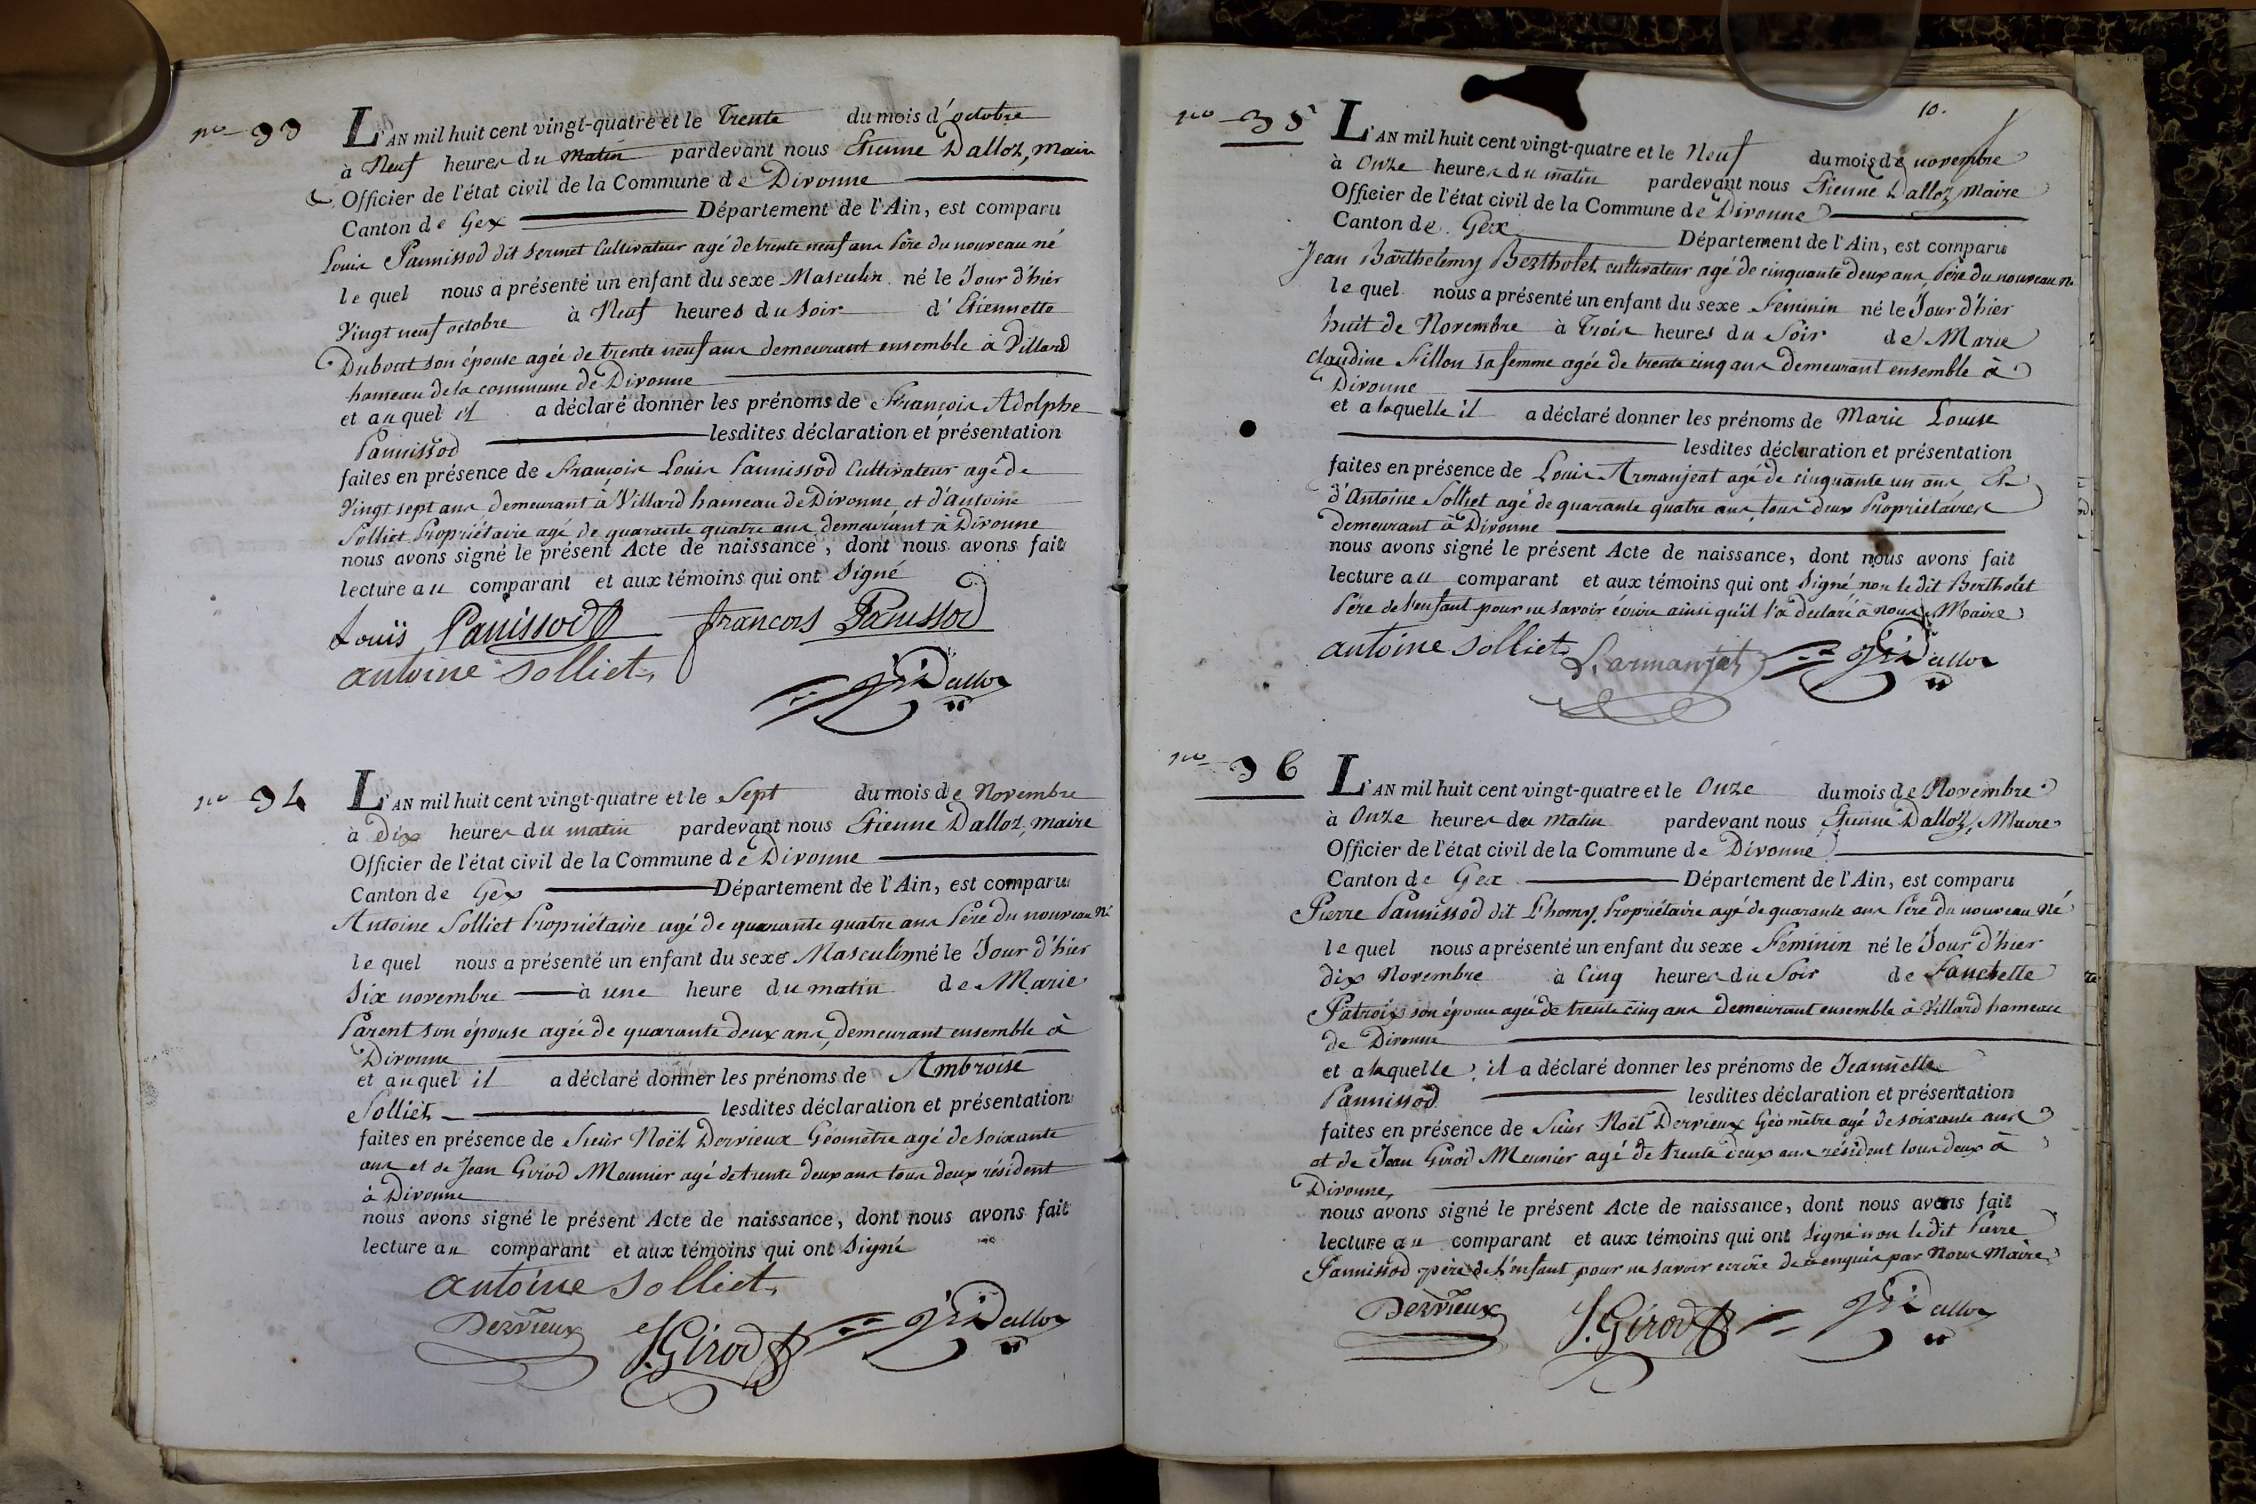 no 33
L'AN mil huit cent vingt-quatre et le Trente du mois d'octobre
à Neuf heures du matin pardevant nous Etienne Dalloz, maire
Officier de l'état civil de la Commune de Divonne
Canton de Gex Département de l'Ain, est comparu
Louis Pannissod dit Sermet Cultivateur agé de trente neuf ans Père du nouveau né
le quel nous a présenté un enfant du sexe Masculin né le Jour d'hier
Vingt neuf octobre à Neuf heures du soir d'Etiennette
Dubout son épouse agée de trente neuf ans demeurant ensemble à Villard
hameau de la commune de Divonne
et au quel il a déclaré donner les prénoms de François Adolphe
Pannissod lesdites déclaration et présentation
faites en présence de François Louis Pannissod Cultivateur agé de
Vingt sept ans demeurant à Villard hameau de Divonne, et d'antoine
Solliet Propriétaire agé de quarante quatre ans demeurant à Divonne
nous avons signé le présent Acte de naissance, dont nous avons fait
lecture au comparant et aux témoins qui ont Signé
Louis Panissod francois Panissod
antoine Solliet
Dalloz
no 34
L'AN mil huit cent vingt-quatre et le Sept du mois de Novembre
à Dix heures du matin pardevant nous Etienne Dalloz, maire
Officier de l'état civil de la Commune de Divonne
Canton de Gex Département de l'Ain, est comparu
Antoine Solliet Propriétaire agé de quarante quatre ans Père du nouveau né
le quel nous a présenté un enfant du sexe Masculin né le Jour d'hier
Six novembre à une heure du matin de Marie
Parent son épouse agée de quarante deux ans, demeurant ensemble à
Divonne
et au quel il a déclaré donner les prénoms de Ambroise
Solliet lesdites déclaration et présentation
faites en présence de Sieur Noël Dervieux Géomètre agé de soixante
ans et de Jean Girod Meunier agé de trente deux ans tous deux résident
à Divonne
nous avons signé le présent Acte de naissance, dont nous avons fait
lecture au comparant et aux témoins qui ont Signé
antoine Solliet
Dervieux J. Girod Dalloz
10.
no 35
L'AN mil huit cent vingt-quatre et le Neuf du mois de novembre
à Onze heures du matin pardevant nous Etienne Dalloz, Maire
Officier de l'état civil de la Commune de Divonne
Canton de Gex Département de l'Ain, est comparu
Jean Barthelemy Bertholet cultivateur agé de cinquante deux ans, Père du nouveau né
le quel nous a présenté un enfant du sexe Feminin né le Jour d'hier
huit de Novembre à Trois heures du Soir de Marie
Claudine Fillon sa femme agée de trente cinq ans demeurant ensemble à
Divonne
et a laquelle il a déclaré donner les prénoms de Marie Louise
lesdites déclaration et présentation
faites en présence de Louis Armanjeat agé de cinquante un ans, Et
d'Antoine Solliet agé de quarante quatre ans, tous deux Propriétaires
demeurant à Divonne
nous avons signé le présent Acte de naissance, dont nous avons fait
lecture au comparant et aux témoins qui ont Signé, non le dit Bertholet
Père de l'enfant pour ne savoir écrire ainsi qu'il l'a declaré à nous, Maire
antoine Solliet L. armanjat Dalloz
no 36
L'AN mil huit cent vingt-quatre et le Onze du mois de Novembre
à Onze heures du Matin pardevant nous Etienne Dalloz, Maire
Officier de l'état civil de la Commune de Divonne
Canton de Gex Département de l'Ain, est comparu
Pierre Pannissod dit Thomy, Propriétaire agé de quarante ans Père du nouveau Né
le quel nous a présenté un enfant du sexe Féminin né le Jour d'hier
dix Novembre à Cinq heures du Soir de Fanchette
Patroix son épouse agée de trente cinq ans demeurant ensemble à Villard hameau
de Divonne
et a laquelle, il a déclaré donner les prénoms de Jeannette
Pannissod lesdites déclaration et présentation
faites en présence de Sieur Noël Dervieux Géomètre agé de soixante ans
et de Jean Girod Meunier agé de trente deux ans résident tous deux à
Divonne,
nous avons signé le présent Acte de naissance, dont nous avons fait
lecture au comparant et aux témoins qui ont Signé non le dit Pierre
Pannissod père de l'enfant pour ne savoir ecrire de ce enquis par Nous Maire
Dervieux J. Girod Dalloz